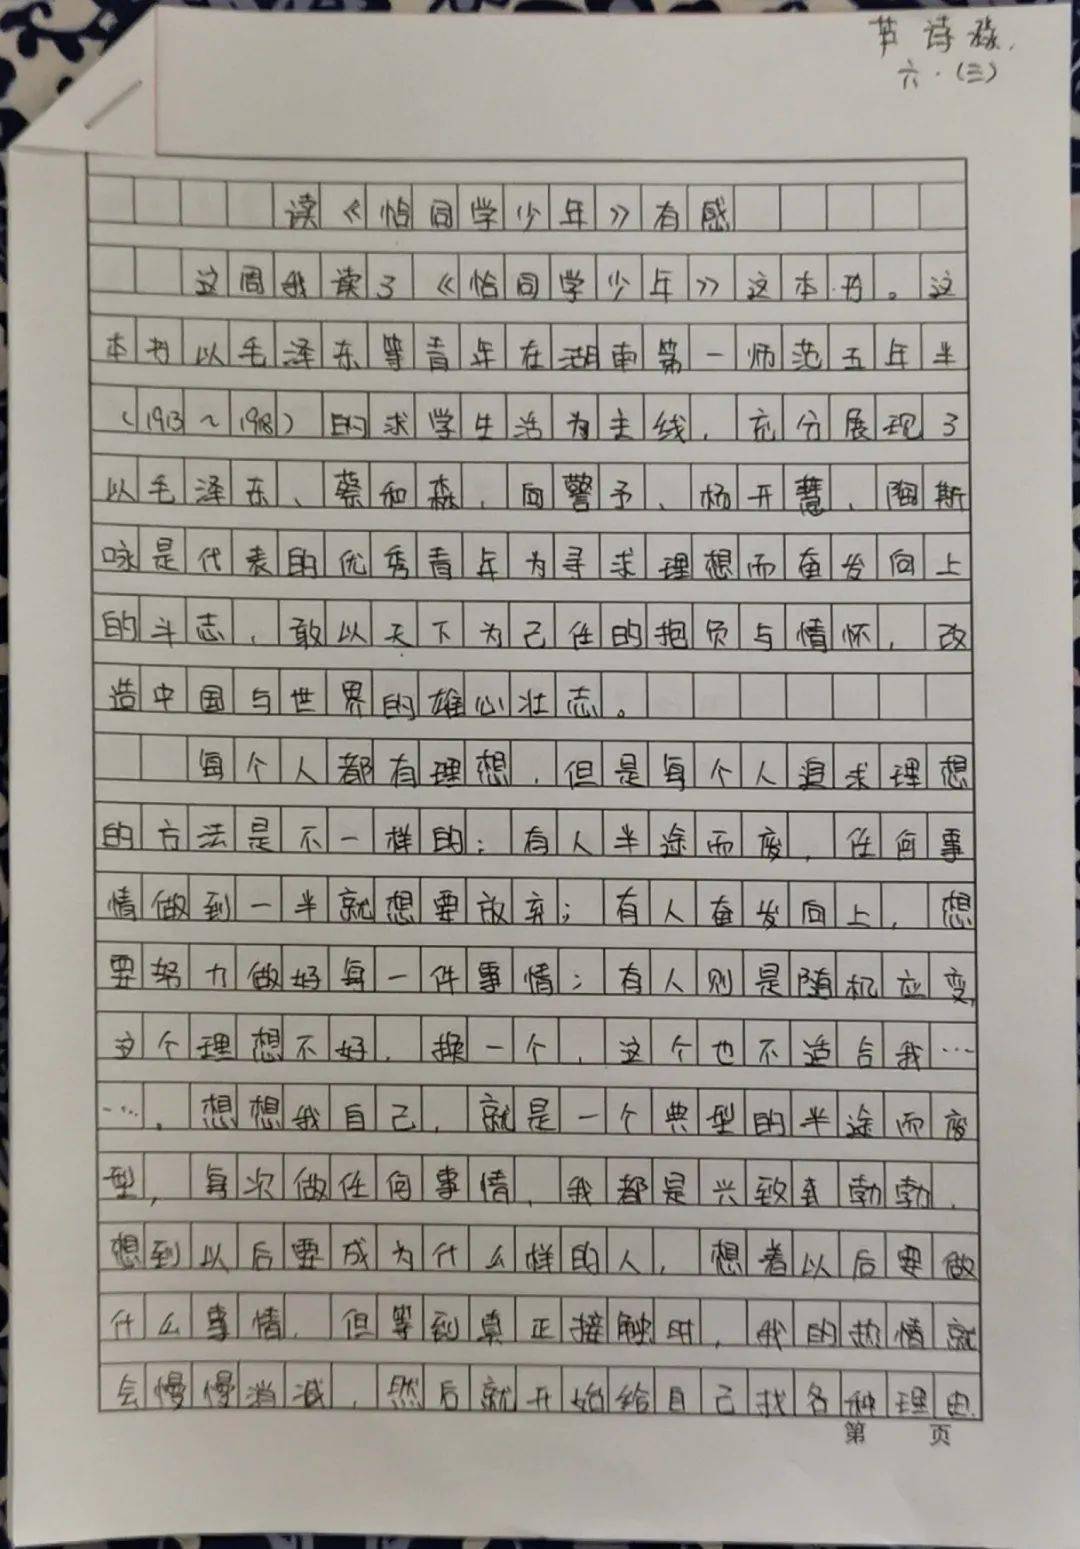 诗
六.(三)
读《恰同学少年》有感
这周我读了《恰同学少年》这本书。这
本书以毛泽东等青年在湖南第一师范五年半
(1913~1918)的求学生活为主线,充分展现了
以毛泽东、蔡和森,向警予、杨开慧、陶斯
咏是代表的优秀青年为寻求理想而奋发向上
的斗志,敢以天下为己任的抱负与情怀,改
造中国与世界的雄心壮志。
每个人都有理想,但是每个人追求理想
的方法是不一样的;有人半途而废,任何事
情做到一半就想要放弃;有人奋发向上,想
要努力做好每一件事情;有人则是随机应变,
这个理想不好,换一个,这个也不适合我…
…。想想我自己,就是一个典型的半途而废
型,每次做任何事情,我都是兴致勃勃,
想到以后要成为什么样的人,想着以后要做
什么事情,但等到真正接触时,我的热情就
会慢慢消减,然后就开始给自己找各种理由.
第 页